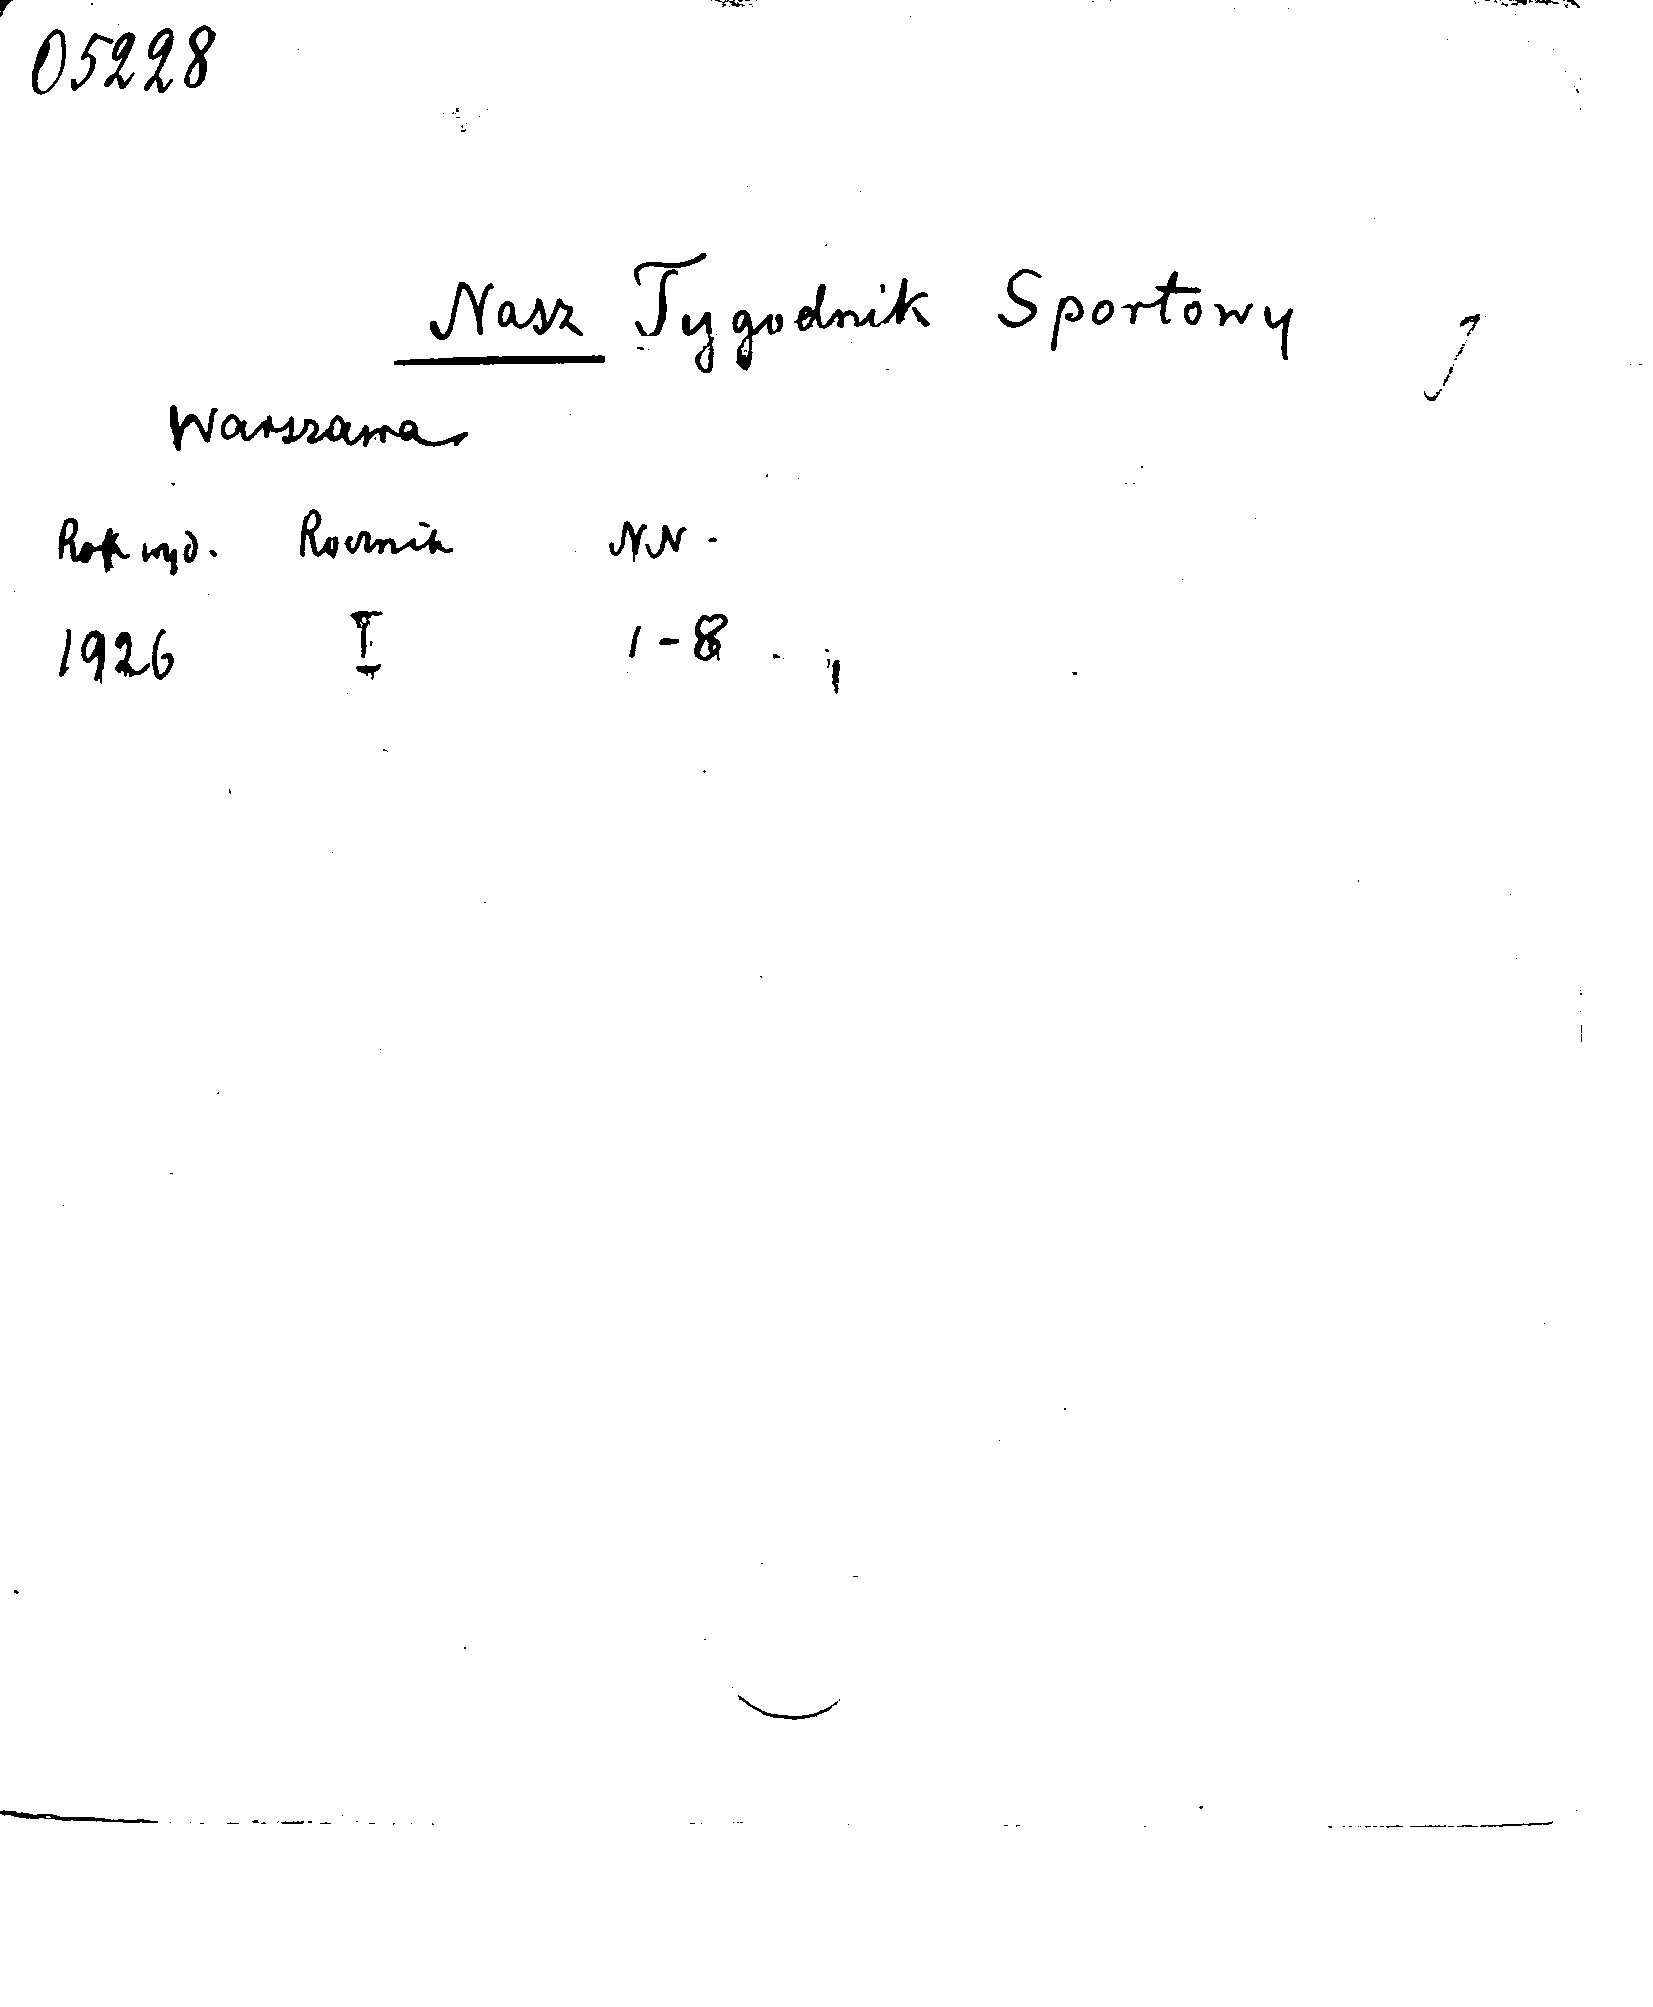 05228
Nasz Tygodnik Sportowy
Warszawa
Rok wyd. Rocznik NN.
1926 I 1-8